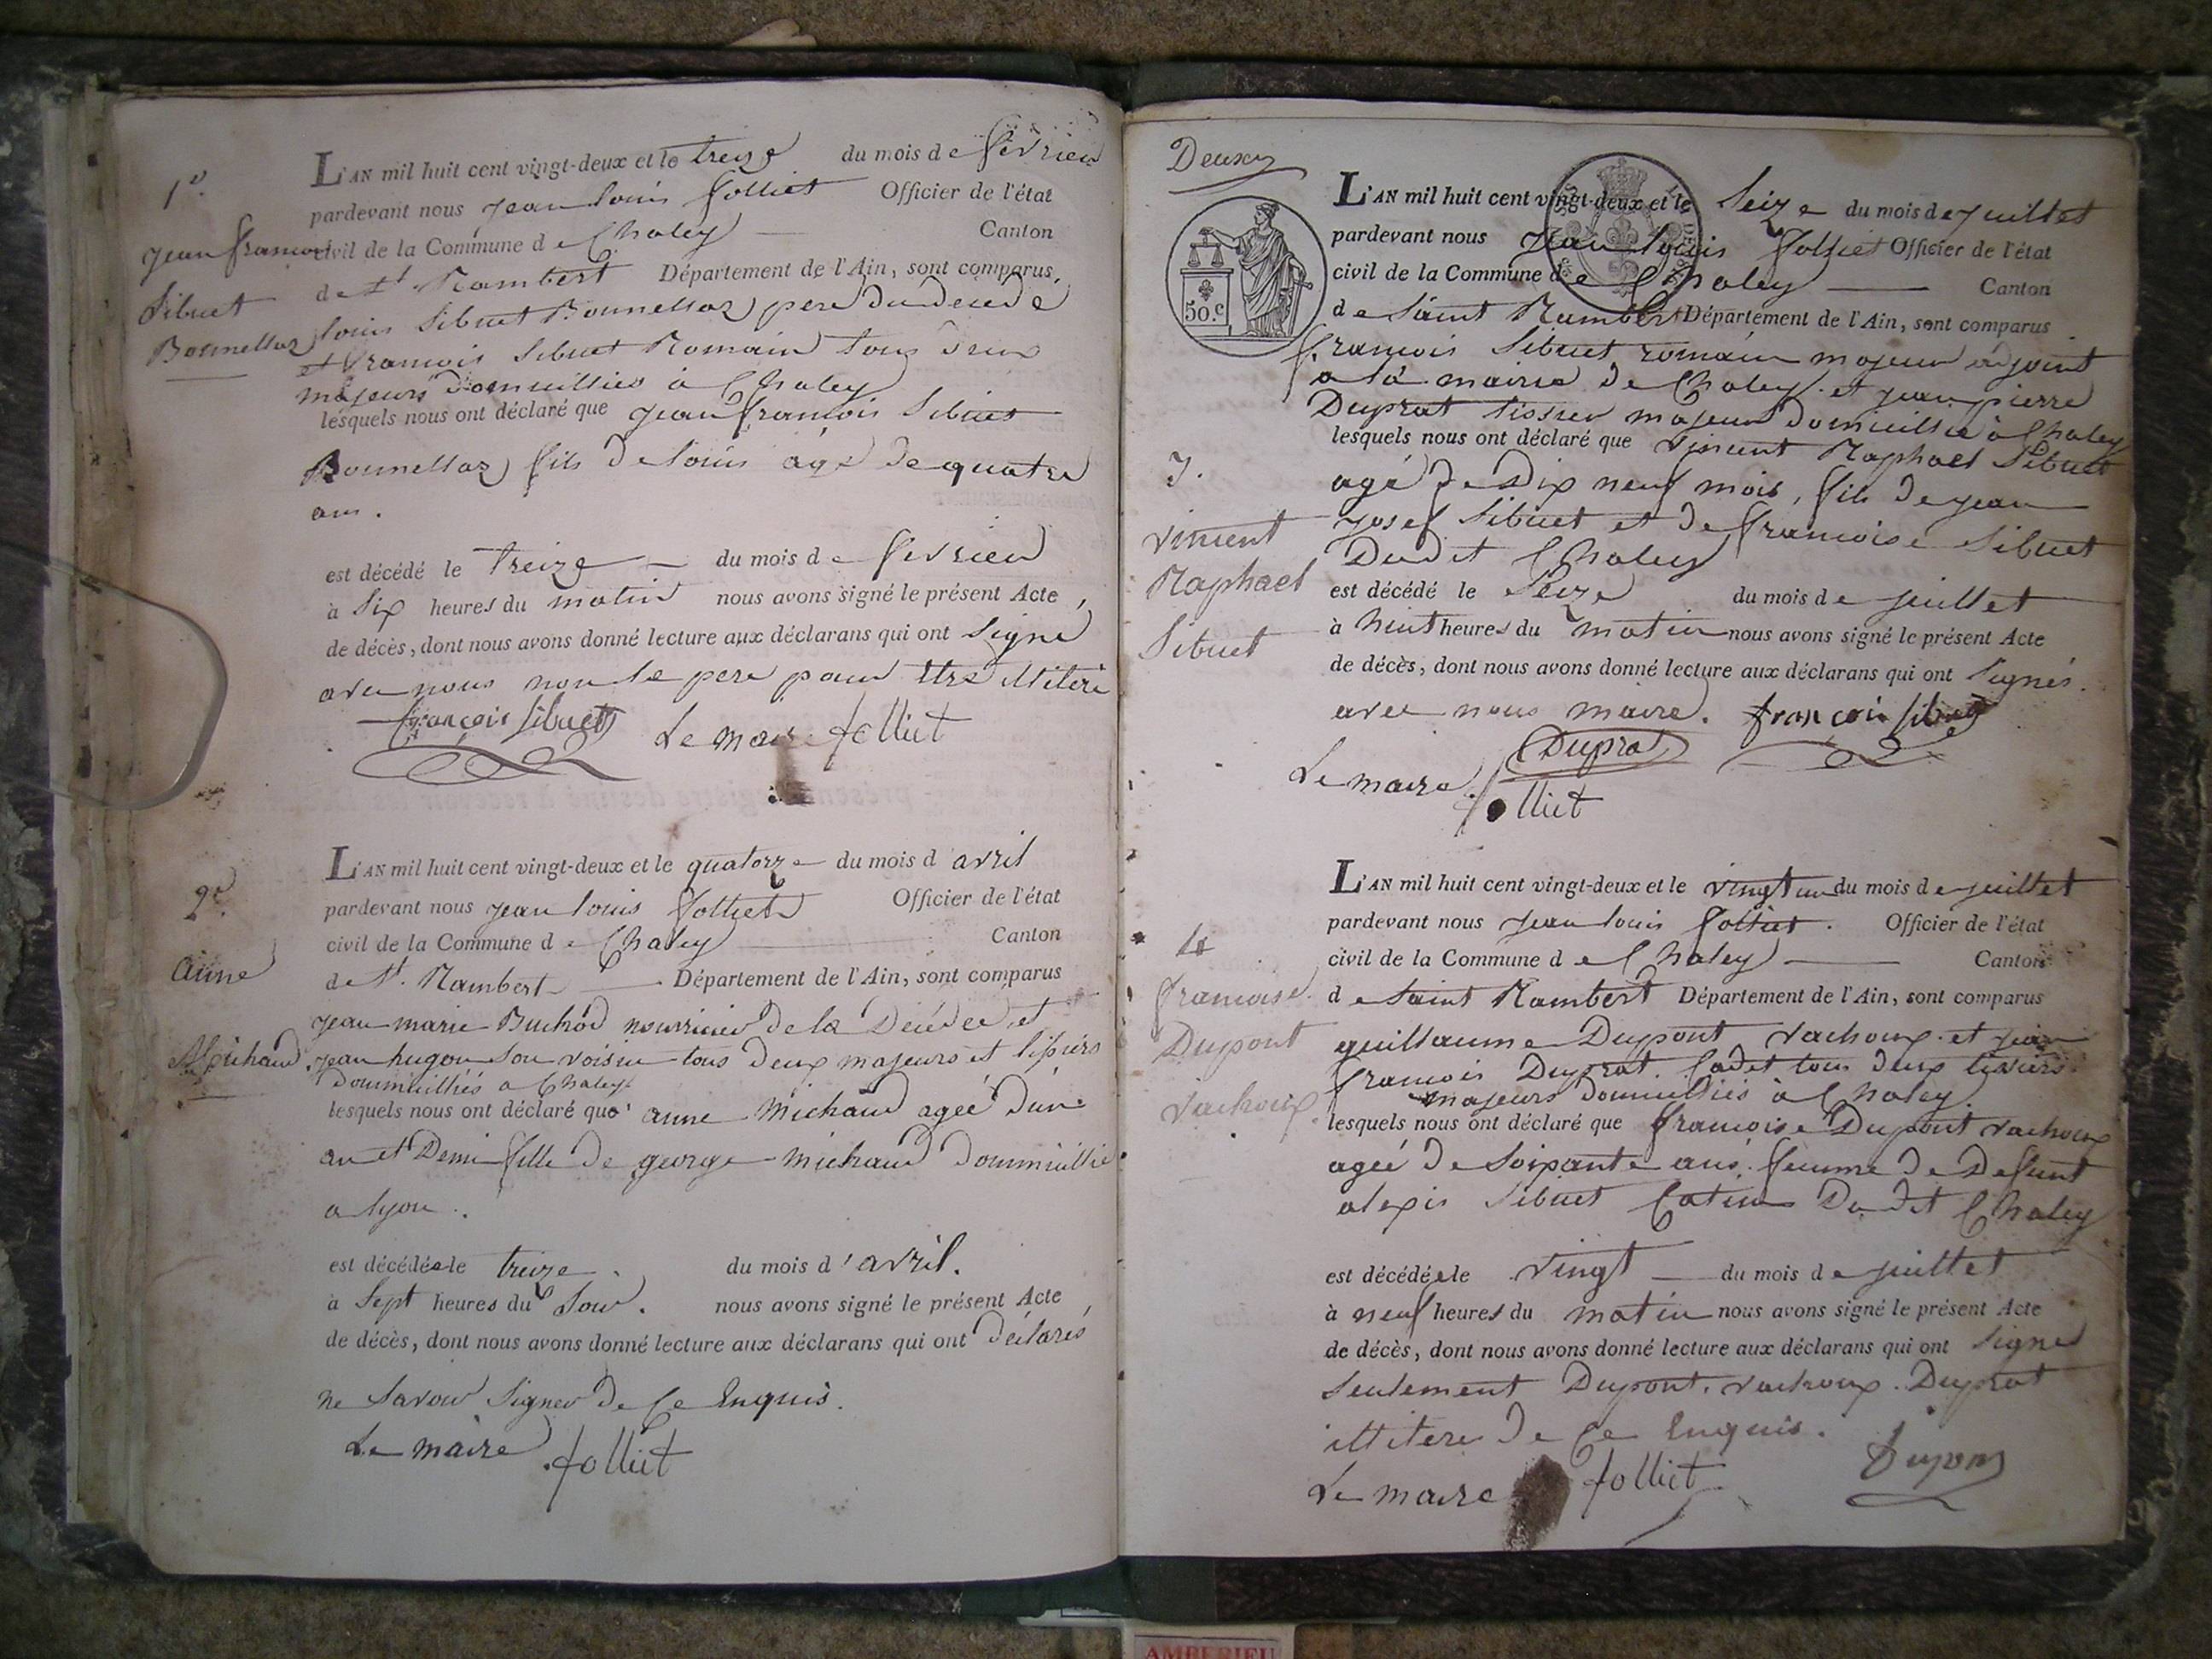 1er.
Jean francois
Sibuet
Bonnellaz
L'AN mil huit cent vingt-deux et le treize du mois de fevrier
pardevant nous jean louis folliet Officier de l'état
civil de la Commune de Chaley Canton
de St. Rambert Département de l'Ain, sont comparus
louis Sibuet Bonnellaz pere du decedé
et francois Sibuet Romain tous deux
majeurs domicilliés à Chaley
lesquels nous ont déclaré que jean francois Sibuet
Bonnellaz fils de louis agé de quatre
ans.
est décédé le treize du mois de fevrier
à Six heures du matin nous avons signé le présent Acte
de décès, dont nous avons donné lecture aux déclarans qui ont Signé
avec nous non le pere pour etre illiteré
françois Sibuet
Le maire folliet
2e.
anne
Michaud
L'AN mil huit cent vingt-deux et le quatorze du mois d avril
pardevant nous jean louis folliet Officier de l'état
civil de la Commune de Chaley Canton
de St. Rambert Département de l'Ain, sont comparus
jean marie Buchod nourricier de la décédée et
jean hugon son voisin tous deux majeurs et tissiers
domicilliés a Chaley
lesquels nous ont déclaré que anne Michaud agée d'un
an et Demi fille de george michaud dommicillié
a lyon.
est décédée le treize du mois d'avril.
à Sept heures du Soir. nous avons signé le présent Acte
de décès, dont nous avons donné lecture aux déclarans qui ont déclarés
ne Savoir Signer de Ce Enquis.
Le maire folliet
Deux
50.c
3.
vincent
Raphael
Sibuet
L'AN mil huit cent vingt-deux et le Seize du mois de juillet
pardevant nous jean louis folliet Officier de l'état
civil de la Commune de Chaley Canton
de Saint Rambert Département de l'Ain, sont comparus
francois Sibuet romain majeur adjoint
a la mairie de Chaley et jean pierre
Duprat tissier majeur domicillié à Chaley
lesquels nous ont déclaré que vincent Raphael Sibuet
agé de Dix neuf mois, fils de jean
josef Sibuet et de francoise Sibuet
Dudit Chaley
est décédé le Seize du mois de juillet
à huit heures du matin nous avons signé le présent Acte
de décès, dont nous avons donné lecture aux déclarans qui ont Signés.
avec nous maire. françois Sibuet
Duprat
Le maire folliet
4
francoise
Dupont
vachoux
L'AN mil huit cent vingt-deux et le vingt un du mois de juillet
pardevant nous jean louis folliet. Officier de l'état
civil de la Commune de Chaley Canton
de Saint Rambert Département de l'Ain, sont comparus
guillaume Dupont vachoux et jean
francois Duprat Cadet tous deux tissiers
majeurs domicilliés à Chaley.
lesquels nous ont déclaré que francoise Dupont vachoux
agée de Soixante ans. femme de Defunt
alexis Sibuet Catin Dudit Chaley
est décédée le vingt du mois de juillet
à neuf heures du matin nous avons signé le présent Acte
de décès, dont nous avons donné lecture aux déclarans qui ont Signé
Seulement Dupont. vachoux. Duprat
illitere de Ce Enquis.
Dupont
Le maire folliet
AMBERIEU